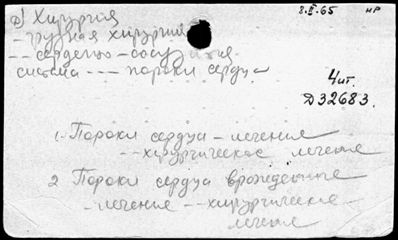 а) Хирургия
8.II.65 нр
- грудная хирургия
-- сердечно-сосудистая
система --- пороки сердца
Чит.
Д32683.
1. Пороки сердца - лечение
-- хирургическое лечение
2 Пороки сердца врожденные
- лечение -- хирургическое
лечение